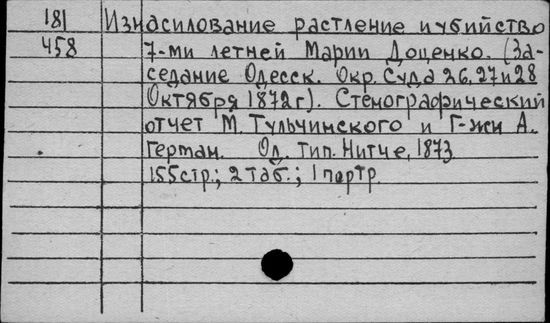 181 Изнасилование растление и убийство
458 7-ми летней Марии Доценко. (За-
седание Одесск. Окр. Суда 26, 27 и 28
Октября 1872 г.). Стенографический
отчет М. Тульчинского и Г-жи А.
Герман. Од. Тип. Нитче, 1873
155 стр.; 2 таб.; 1 портр.